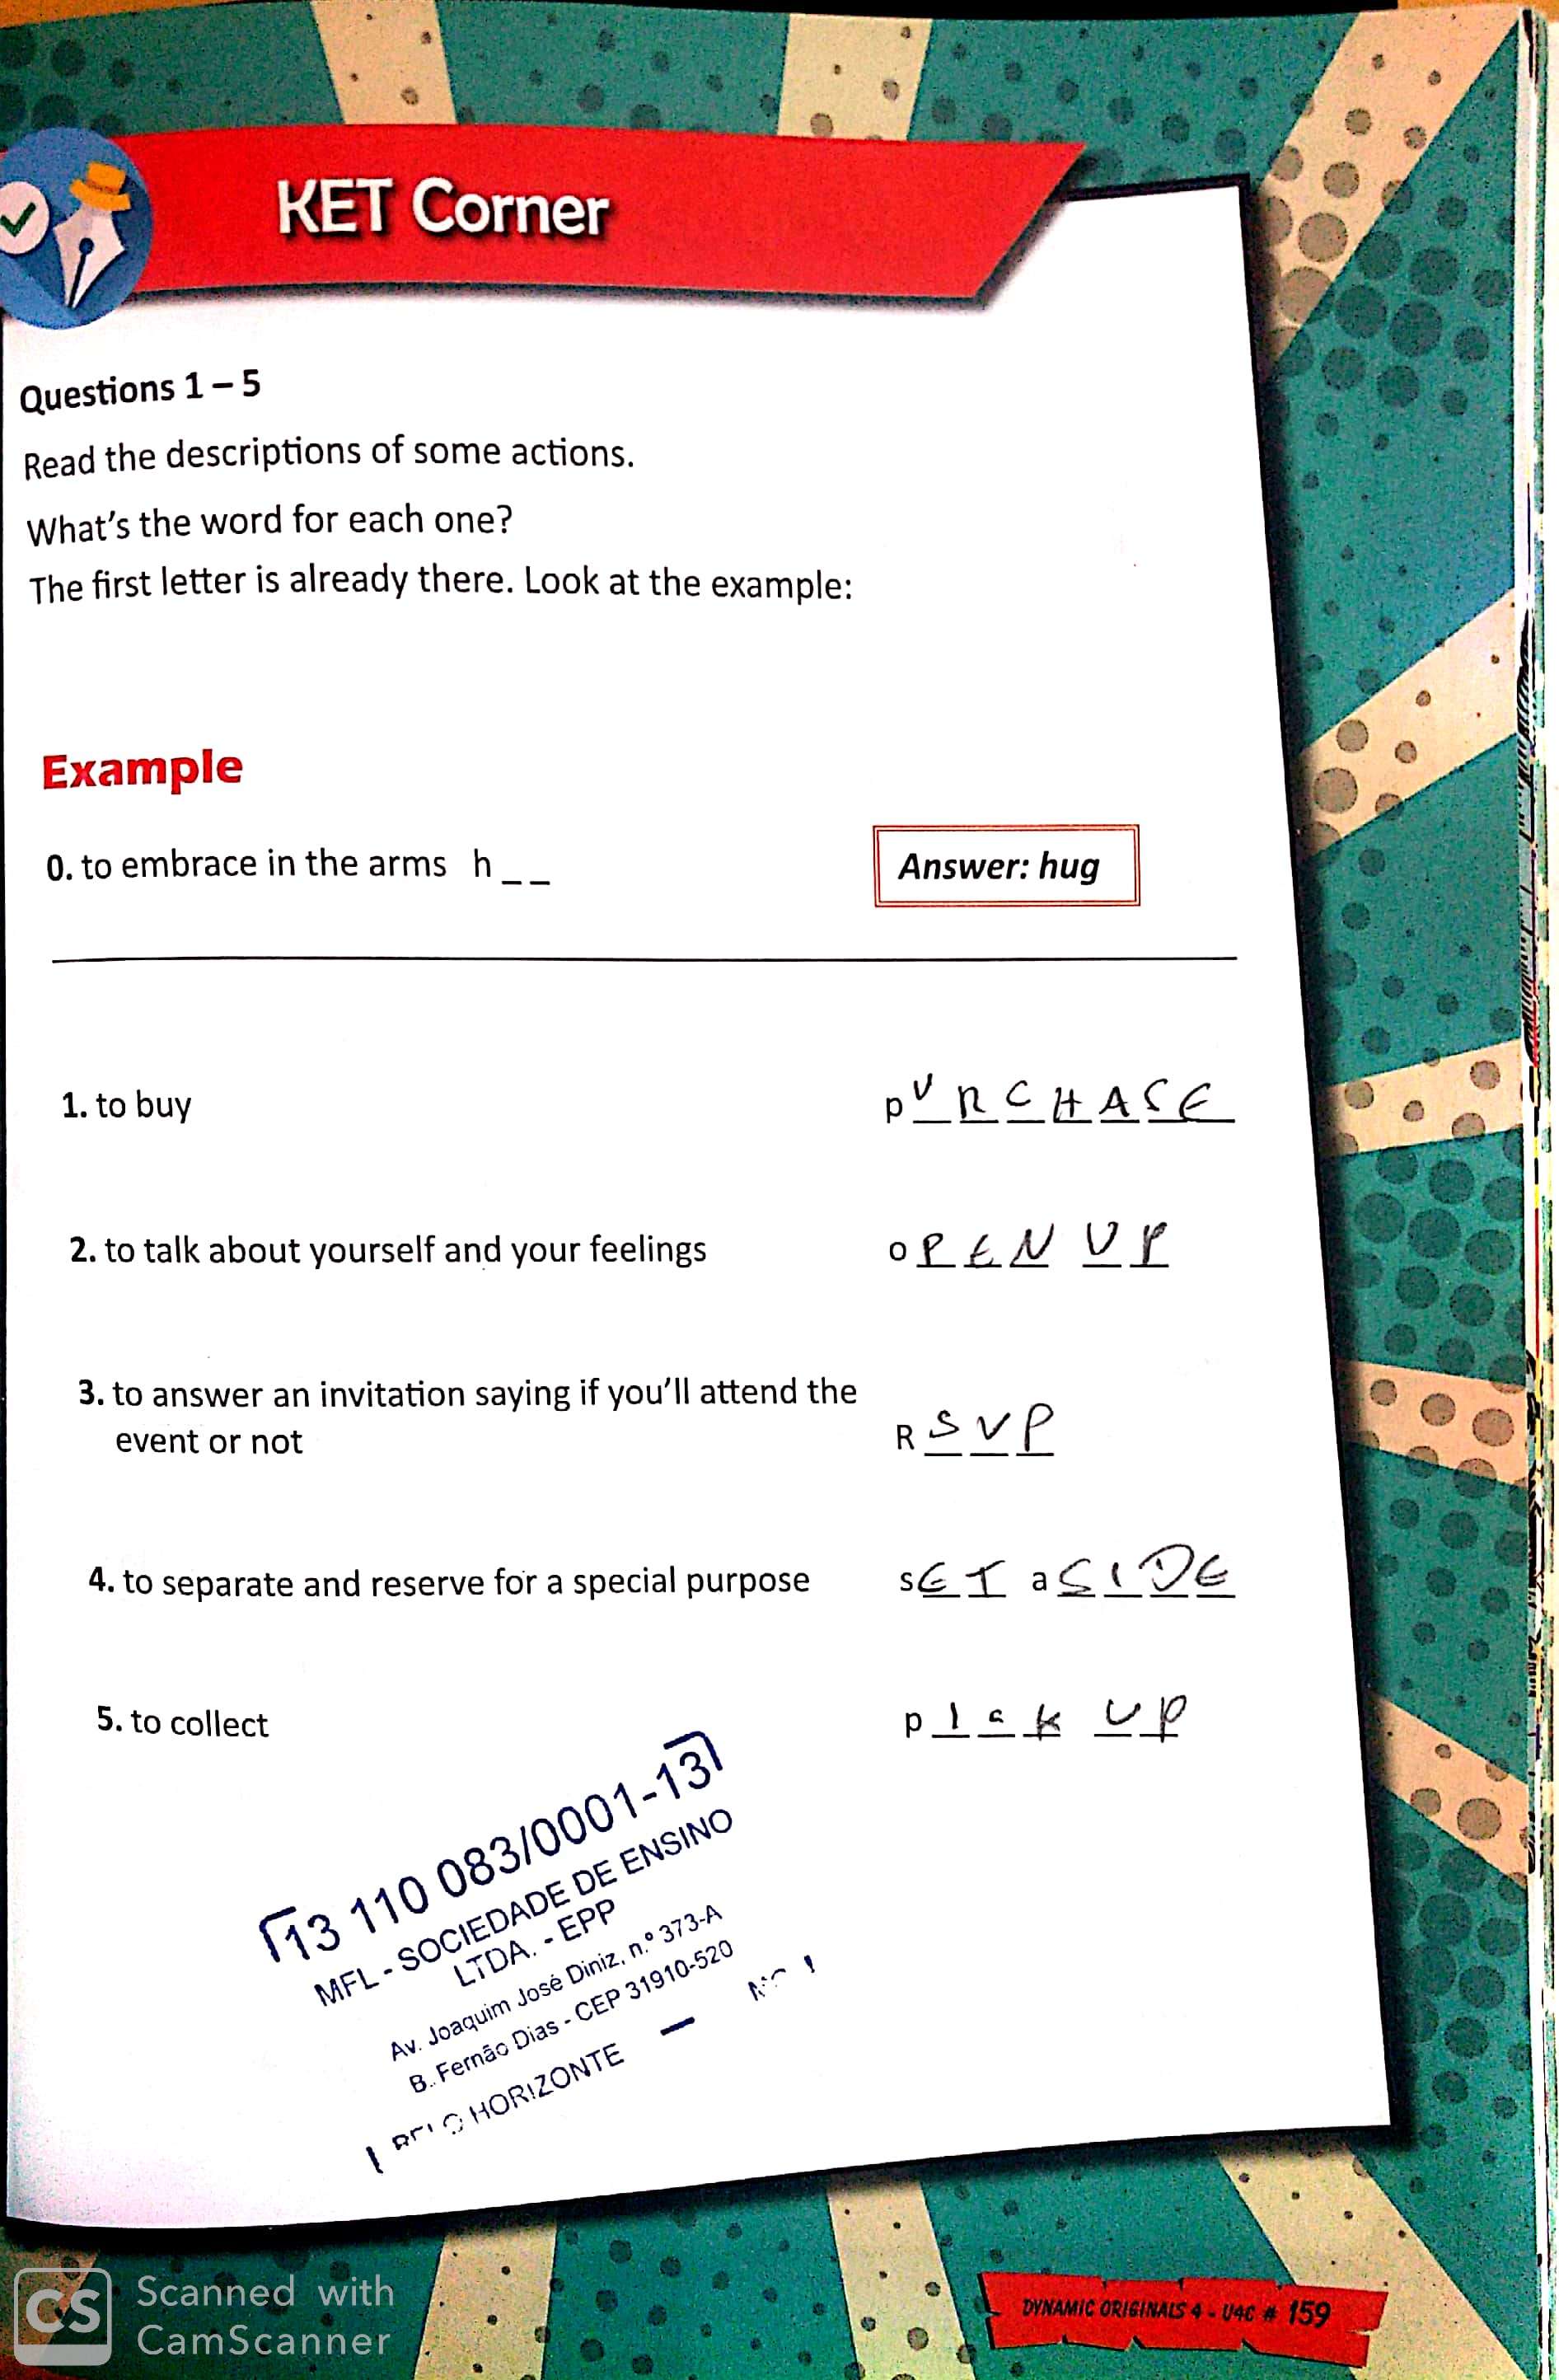 KET Corner
Questions 1 – 5
Read the descriptions of some actions.
What's the word for each one?
The first letter is already there. Look at the example:
Example
0. to embrace in the arms h _ _
Answer: hug
1. to buy
pURCHASE
2. to talk about yourself and your feelings
oPEN UP
3. to answer an invitation saying if you'll attend the
event or not
RSVP
4. to separate and reserve for a special purpose
sET aSIDE
5. to collect
pick UP
13 110 083/0001-13
MFL - SOCIEDADE DE ENSINO
LTDA. - EPP
Av. Joaquim José Diniz, n.º 373-A
B. Fernão Dias - CEP 31910-520
HORIZONTE –
DYNAMIC ORIGINALS 4 - U4C # 159
CS
Scanned with
CamScanner